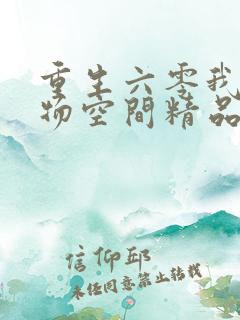 重生六零我
物空間精品
信仰邱
未经同意禁止转载